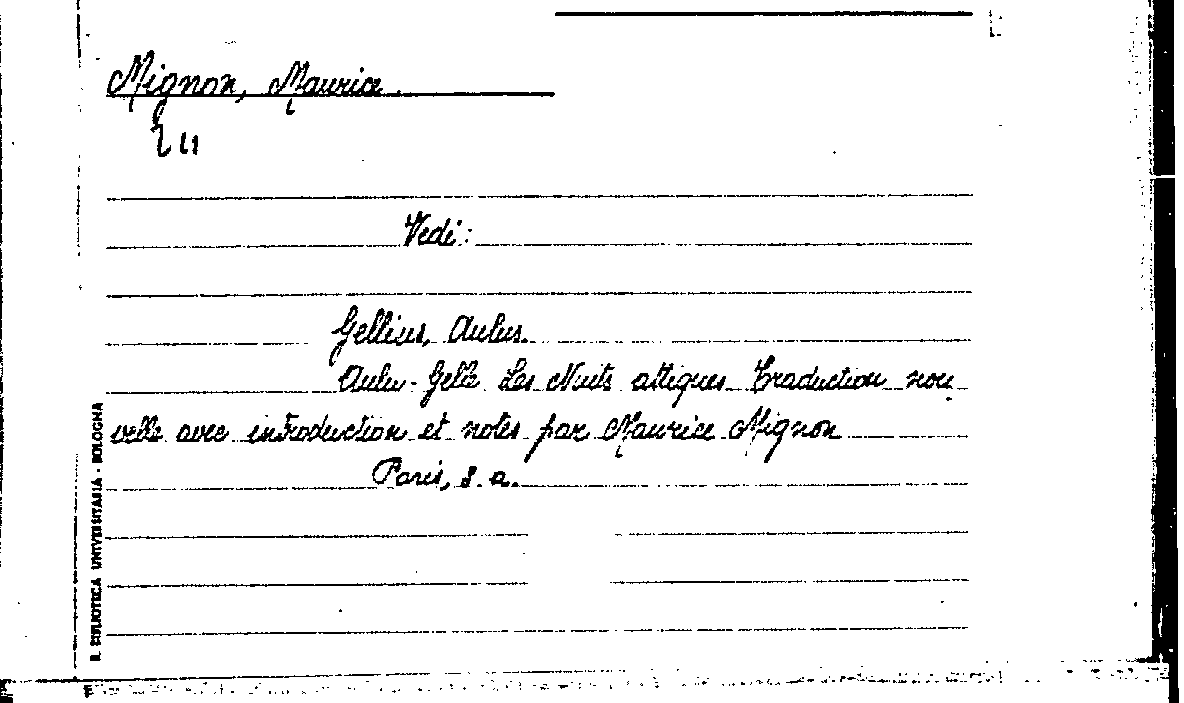 Mignon, Maurice.
Vedi:
Gellius, Aulus.
Aulu-Gelle Les Nuits attiques Traduction nou
velle avec introduction et notes par Maurice Mignon
Paris, s. a.
R. BIBLIOTECA UNIVERSITARIA - BOLOGNA